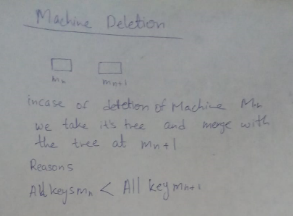 Machine Deletion
Mn Mn+1
incase of deletion of Machine Mn
we take it's tree and merge with
the tree at mn+1
Reasons
All keys mn < All key mn+1